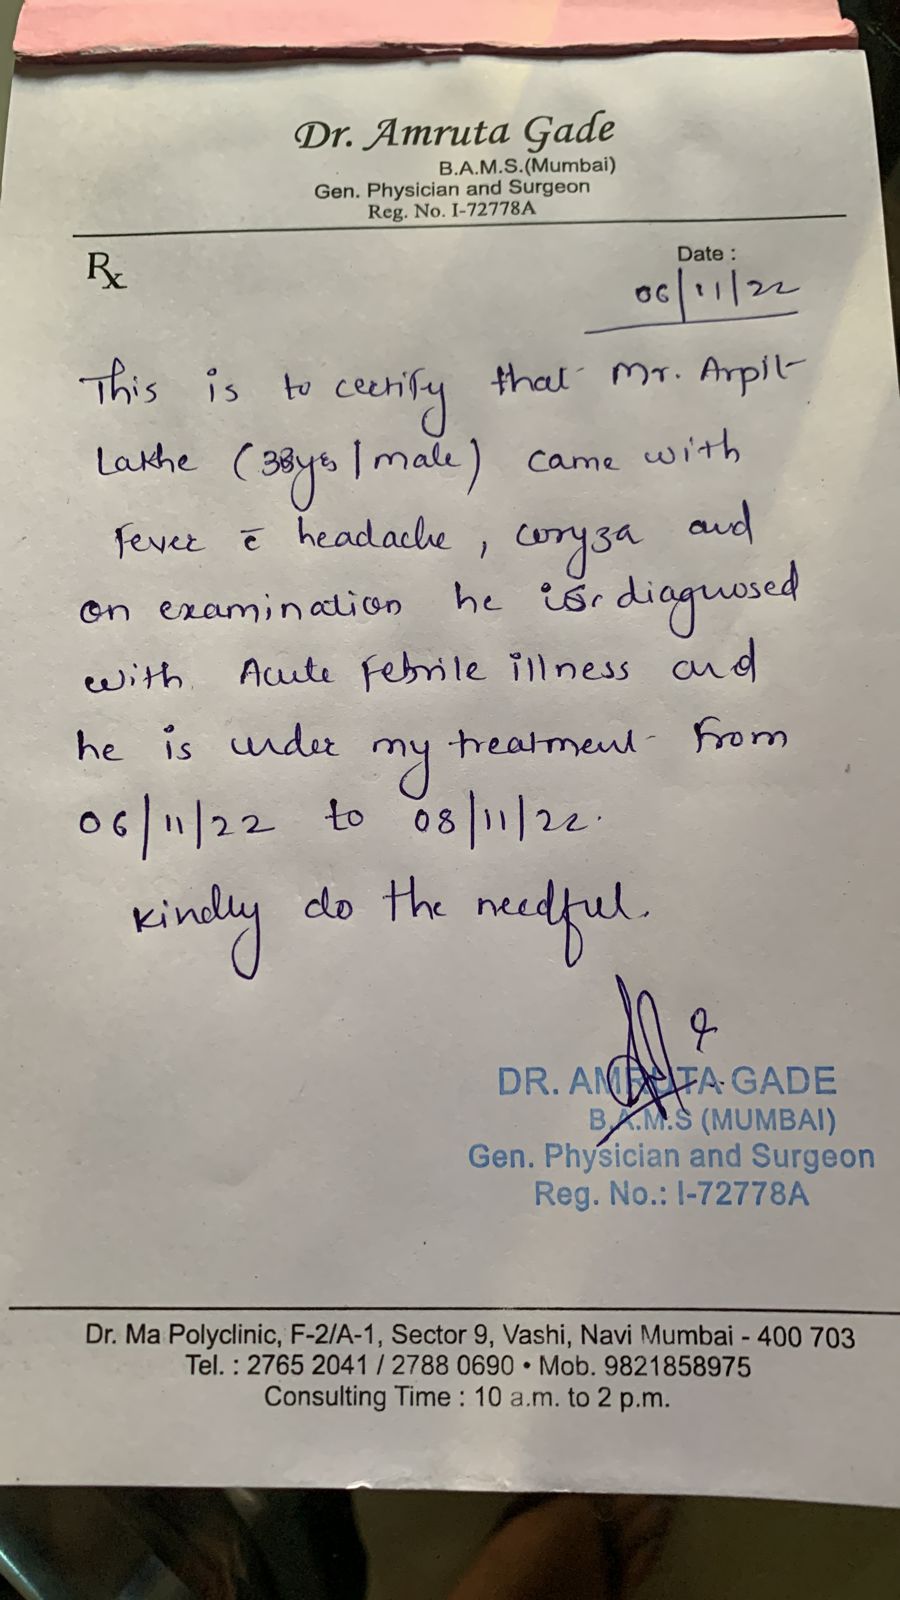 Dr. Amruta Gade
B.A.M.S.(Mumbai)
Gen. Physician and Surgeon
Reg. No. I-72778A
Rx
Date :
06/11/22
This is to certify that Mr. Arpit
Lakhe (38yrs/male) came with
Fever c̄ headache, coryza and
on examination he is diagnosed
with Acute Febrile illness and
he is under my treatment from
06/11/22 to 08/11/22.
Kindly do the needful.
DR. AMRUTA GADE
B.A.M.S (MUMBAI)
Gen. Physician and Surgeon
Reg. No.: I-72778A
Dr. Ma Polyclinic, F-2/A-1, Sector 9, Vashi, Navi Mumbai - 400 703
Tel. : 2765 2041 / 2788 0690 • Mob. 9821858975
Consulting Time : 10 a.m. to 2 p.m.